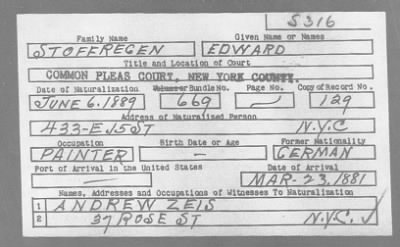 S316
Family Name Given Name or Names
STOFFREGEN EDWARD
Title and Location of Court
COMMON PLEAS COURT, NEW YORK COUNTY.
Date of Naturalization Volume or Bundle No. Page No. Copy of Record No.
JUNE 6, 1889 669 — 129
Address of Naturalized Person
433-E 15 ST N.Y.C
Occupation Birth Date or Age Former Nationality
PAINTER — GERMAN
Port of Arrival in the United States Date of Arrival
— MAR-23, 1881
Names, Addresses and Occupations of Witnesses To Naturalization
1 ANDREW ZEIS
2 37 ROSE ST N.Y.C. ✓